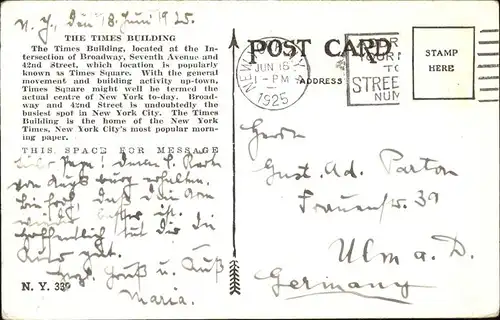 N. Y., den 18. Juni 1925.
THE TIMES BUILDING
The Times Building, located at the In-
tersection of Broadway, Seventh Avenue and
42nd Street, which location is popularly
known as Times Square. With the general
movement and building activity up-town,
Times Square might well be termed the
actual centre of New York to-day. Broad-
way and 42nd Street is undoubtedly the
busiest spot in New York City. The Times
Building is the home of the New York
Times, New York City's most popular morn-
ing paper.
THIS SPACE FOR MESSAGE
Lieber Papa! Deine l. Karte
von Augsburg erhalten.
Bin froh, daß die Arm
wieder besser ist.
Hoffentlich tut dir die
Kur gut.
Hrzl. Gruß u. Kuß
Maria.
N. Y. 339
POST CARD
ADDRESS
NEW YORK
JUN 18
1-PM
1925
STREET
NUM
STAMP
HERE
Herrn
Gust. Ad. Parton
Frauenstr. 39
Ulm a. D.
Germany